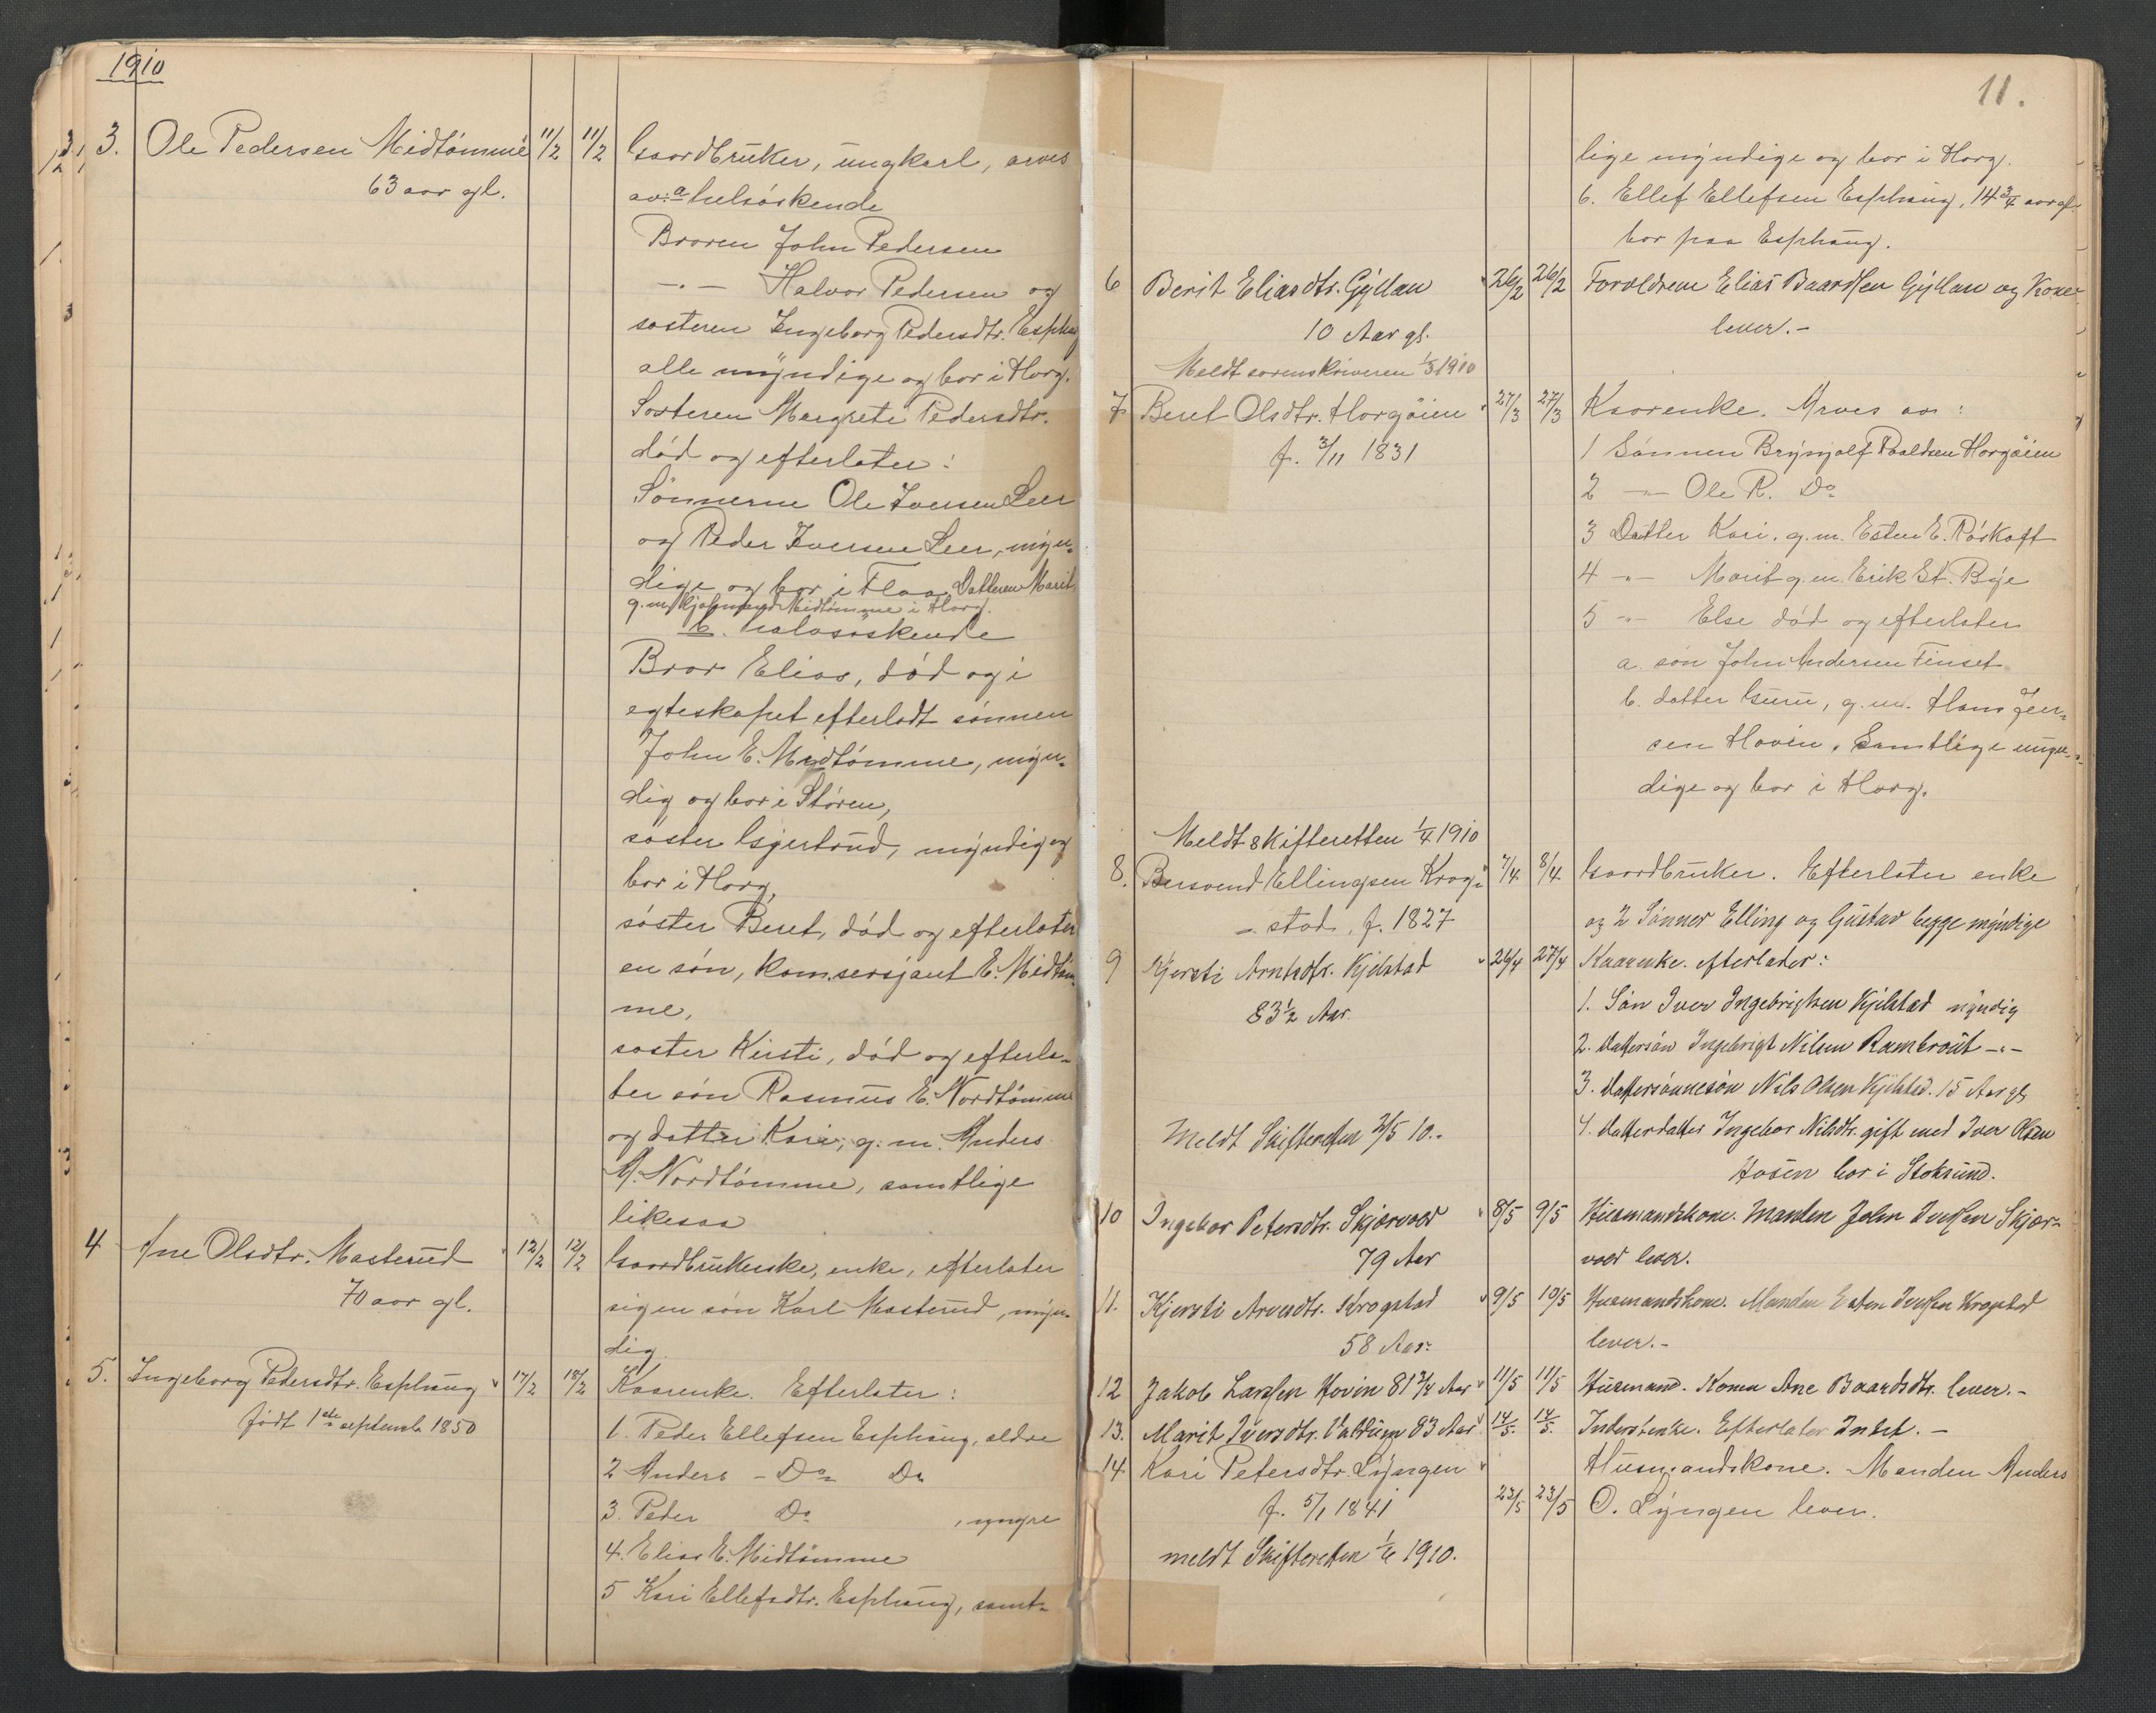 1910
3. Ole Pedersen Midtømme 11/2 11/2 Gaardbruker, ungkarl, arves
63 aar gl. av: a helsøskende
Broren John Pedersen
-"- Halvor Pedersen og
søsteren Ingeborg Pedersdtr. Esphaug
alle myndige og bor i Horg.
Søsteren Margrete Pedersdtr.
død og efterlater:
Sønnerne Ole Iversen Leer
og Peder Iversen Leer, myn-
dige og bor i Flaa. Datteren Marit,
g.m. Midtømme i Horg.
b. halvsøskende
Bror Elias, død og i
egteskapet efterladt sønnen
John E. Midtømme, myn-
dig og bor i Støren,
søster Gjertrud, myndig og
bor i Horg,
søster Beret, død og efterlater
en søn, komsersjant E. Midtøm-
me,
søster Kirsti, død og efterla-
ter søn Rasmus E. Nordtømme
og datter Kari, g. m. Anders
A. Nordtømme, samtlige
likesaa
4 Ane Olsdtr. Masterud 12/2 12/2 Gaardbrukerske, enke, efterlater
70 aar gl. sig en søn Karl Masterud, myn-
dig.
5. Ingeborg Pedersdtr. Esphaug 17/2 18/2 Kaarenke. Efterlater:
født 1ste septemb. 1850 1. Peder Ellefsen Esphaug, ældre
2 Anders - Do Do
3. Peder Do , yngre
4. Elias E. Midtømme
5 Kari Ellefsdtr. Esphaug, samt-
11.
lige myndige og bor i Horg.
6. Ellef Ellefsen Esphaug, 14 3/4 aar gl.
bor paa Esphaug.
6 Berit Eliasdtr. Gyllan 26/2 26/2 Forældrene Elias Baardsen Gyllan og Kone
10 Aar gl. lever.-
Meldt sorenskriveren 1/3 1910
7 Beret Olsdtr. Horgøien 27/3 27/3 Kaarenke. Arves av:
f. 3/11 1831 1 Sønnen Brynjolf Roaldsen Horgøien
2 -"- Ole R. Do
3 Datter Kari, g.m. Esten E. Røskaft
4 -"- Marit g.m. Erik St. Bye
5 -"- Else død og efterlater
a. søn John Andersen Finset
b. datter Guru, g.m. Hans Jen-
sen Hovin. Samtlige myn-
dige og bor i Horg.
Meldt skifteretten 1/4 1910
8. Bersvend Ellingsen Krog- 7/4 8/4 Gaardbruker. Efterlater enke
- stad, f. 1827 og 2 Sønner Elling og Gustav begge myndige
9 Kjersti Arntsdtr. Kjelstad 26/4 27/4 Kaarenke. efterlader:
83 1/2 Aar. 1. Søn Iver Ingebrigtsen Kjelstad myndig
2. Dattersøn Ingebrigt Nilsen Rambraut -"-
3. Dattersønnesøn Nils Olsen Kjelstad. 15 Aar gl.
Meldt Skifteretten 2/5 10.. 4. Datterdatter Ingebor Nilsdtr. gift med Iver Olsen
Hosen bor i Stoksund.
10 Ingebor Petersdtr. Skjærvoд 8/5 9/5 Husmandskone. Manden John Iversen Skjær-
79 Aar vold lever.
11. Kjersti Arvesdtr. Krogstad 9/5 10/5 Husmandskone. Manden Esten Iversen Krogstad
58 Aar. lever.-
12 Jakob Larssen Hovin 81 3/4 Aar 11/5 11/5 Husmand. Konen Ane Baardsdtr. lever.-
13. Marit Iversdtr. Valdum 83 Aar 14/5. 14/5. Inderstenke. Efterlater Intet. -
14 Kari Petersdtr. Lyngen Husmandskone. Manden Anders
f. 5/1 1841 23/5 23/5 O. Lyngen lever.
meldt Skifteretten 1/6 1910.